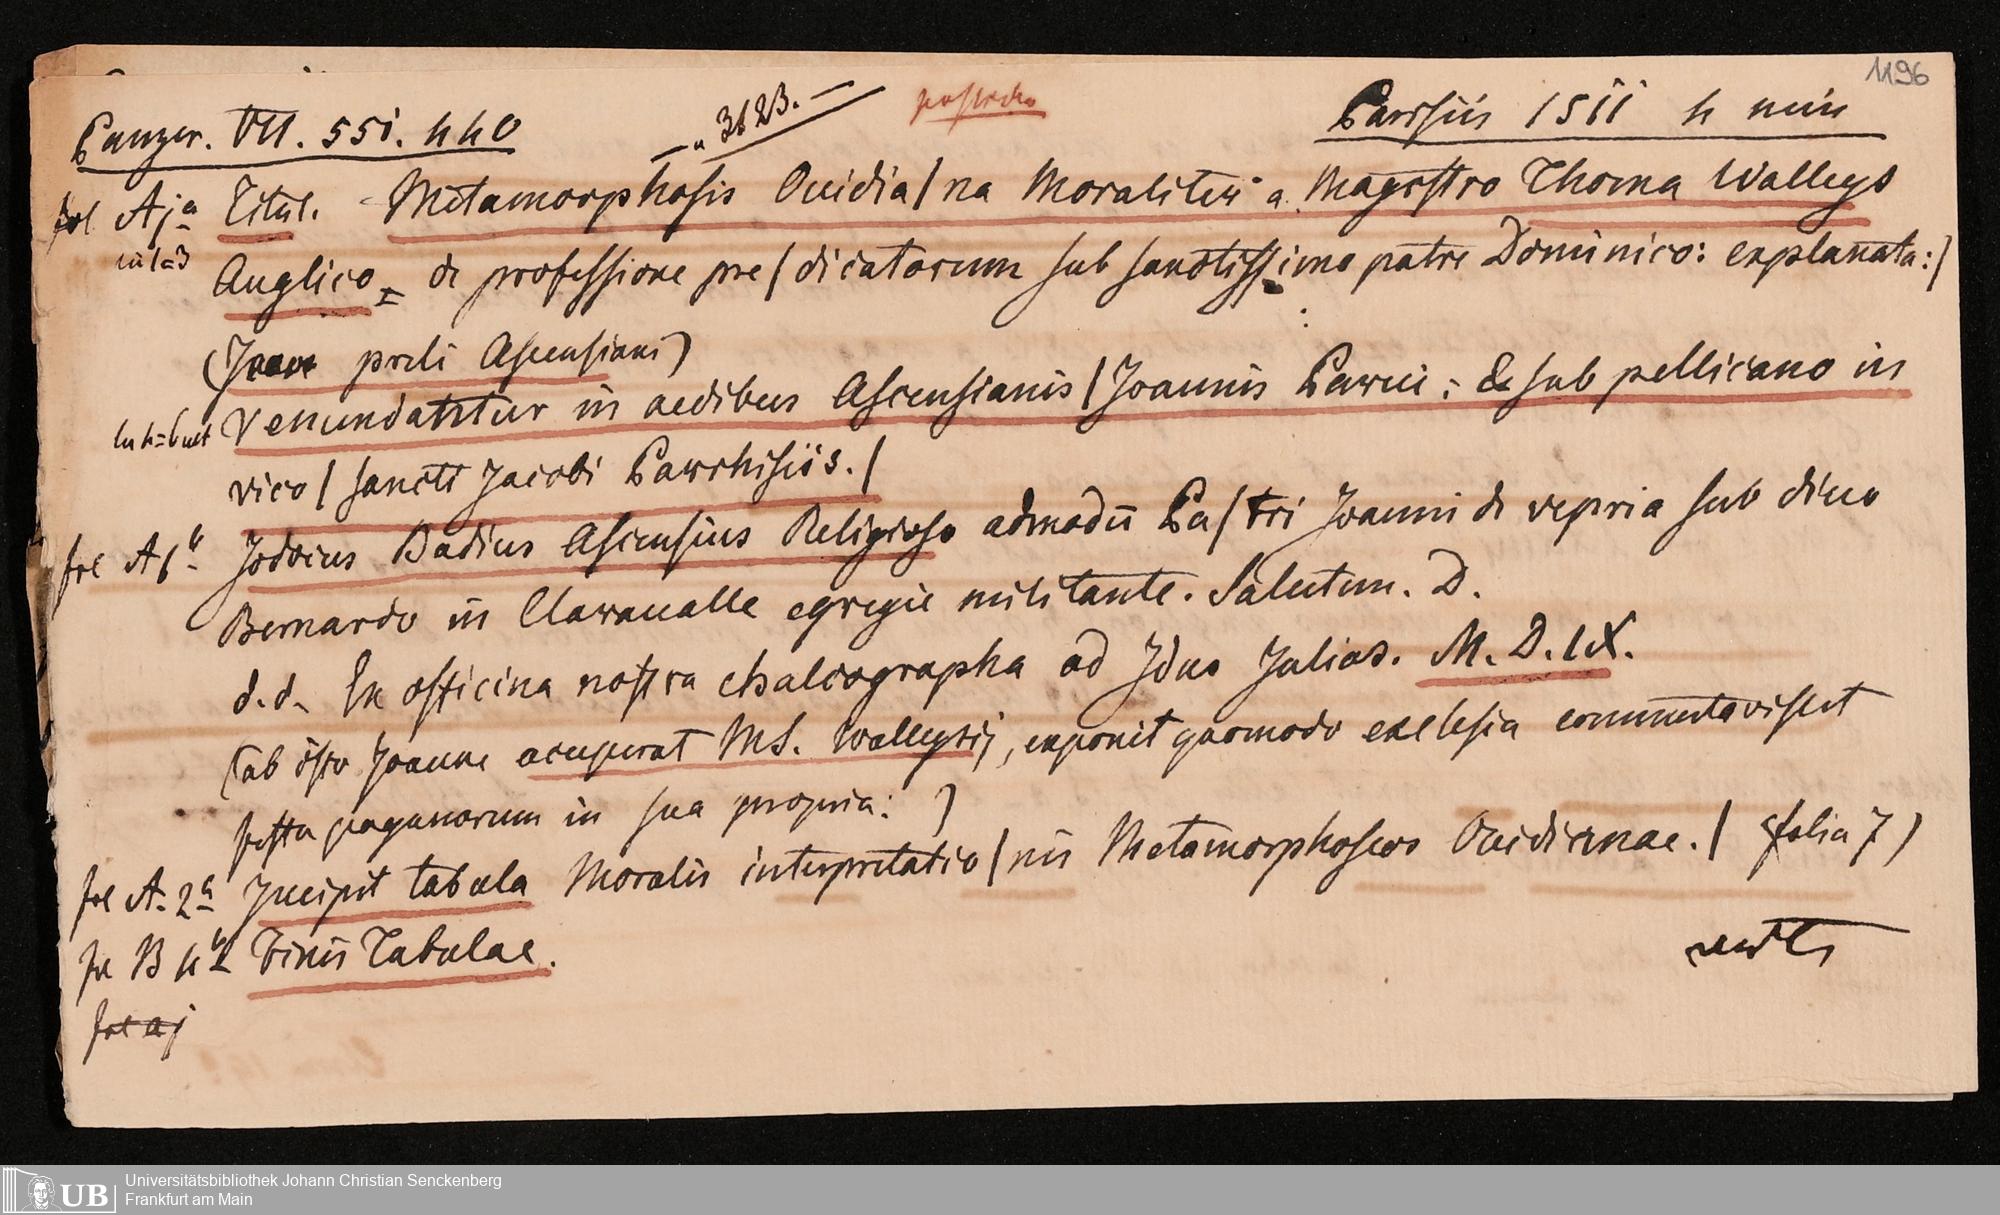 1196
Panzer. VII. 551. 440
3623.
Parrsiis 1511 4 min
fol Aja Titul. Metamorphosis Ouidia/na Moraliter a Magistro Thoma Walleys
Anglico de professione pre/dicatorum sub sanctissimo patre Dominico: explanata:/
preli Ascensiani)
Venundatur in aedibus Ascensianis/Joannis Parui: & sub pellicano in
vico/sancti Jacobi Parrhisiis./
fol A1b Jodocus Badius Ascensius Religioso admodū Pa/tri Joanni de vepria sub diuo
Bernardo in Claraualle egregie militante. Salutem. D.
d.d. Ex officina nostra chalcographa ad Idus Julias. M.D.IX.
(ab isto Joanne acceperat MS. Walleysij, exponit quomodo ecclesia commutavisset
festa paganorum in sua propria:)
fol A.2a Incipit tabula Moralis interpretatio/nis Metamorphoseos Ouidianae./ (folia 7)
fol B4b Finis Tabulae.
verte
fol aj
Universitätsbibliothek Johann Christian Senckenberg
UB Frankfurt am Main